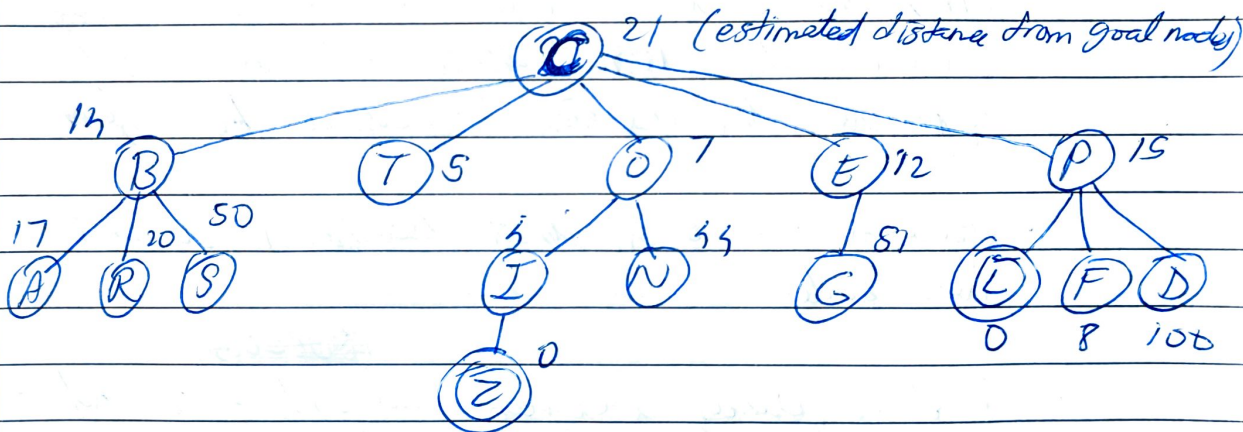 21 (estimated distance from goal nodes)
14 B T 5 O 7 E 12 P 15
17 20 50 4 44
A R S I N G L F D
0 8 100
Z 0